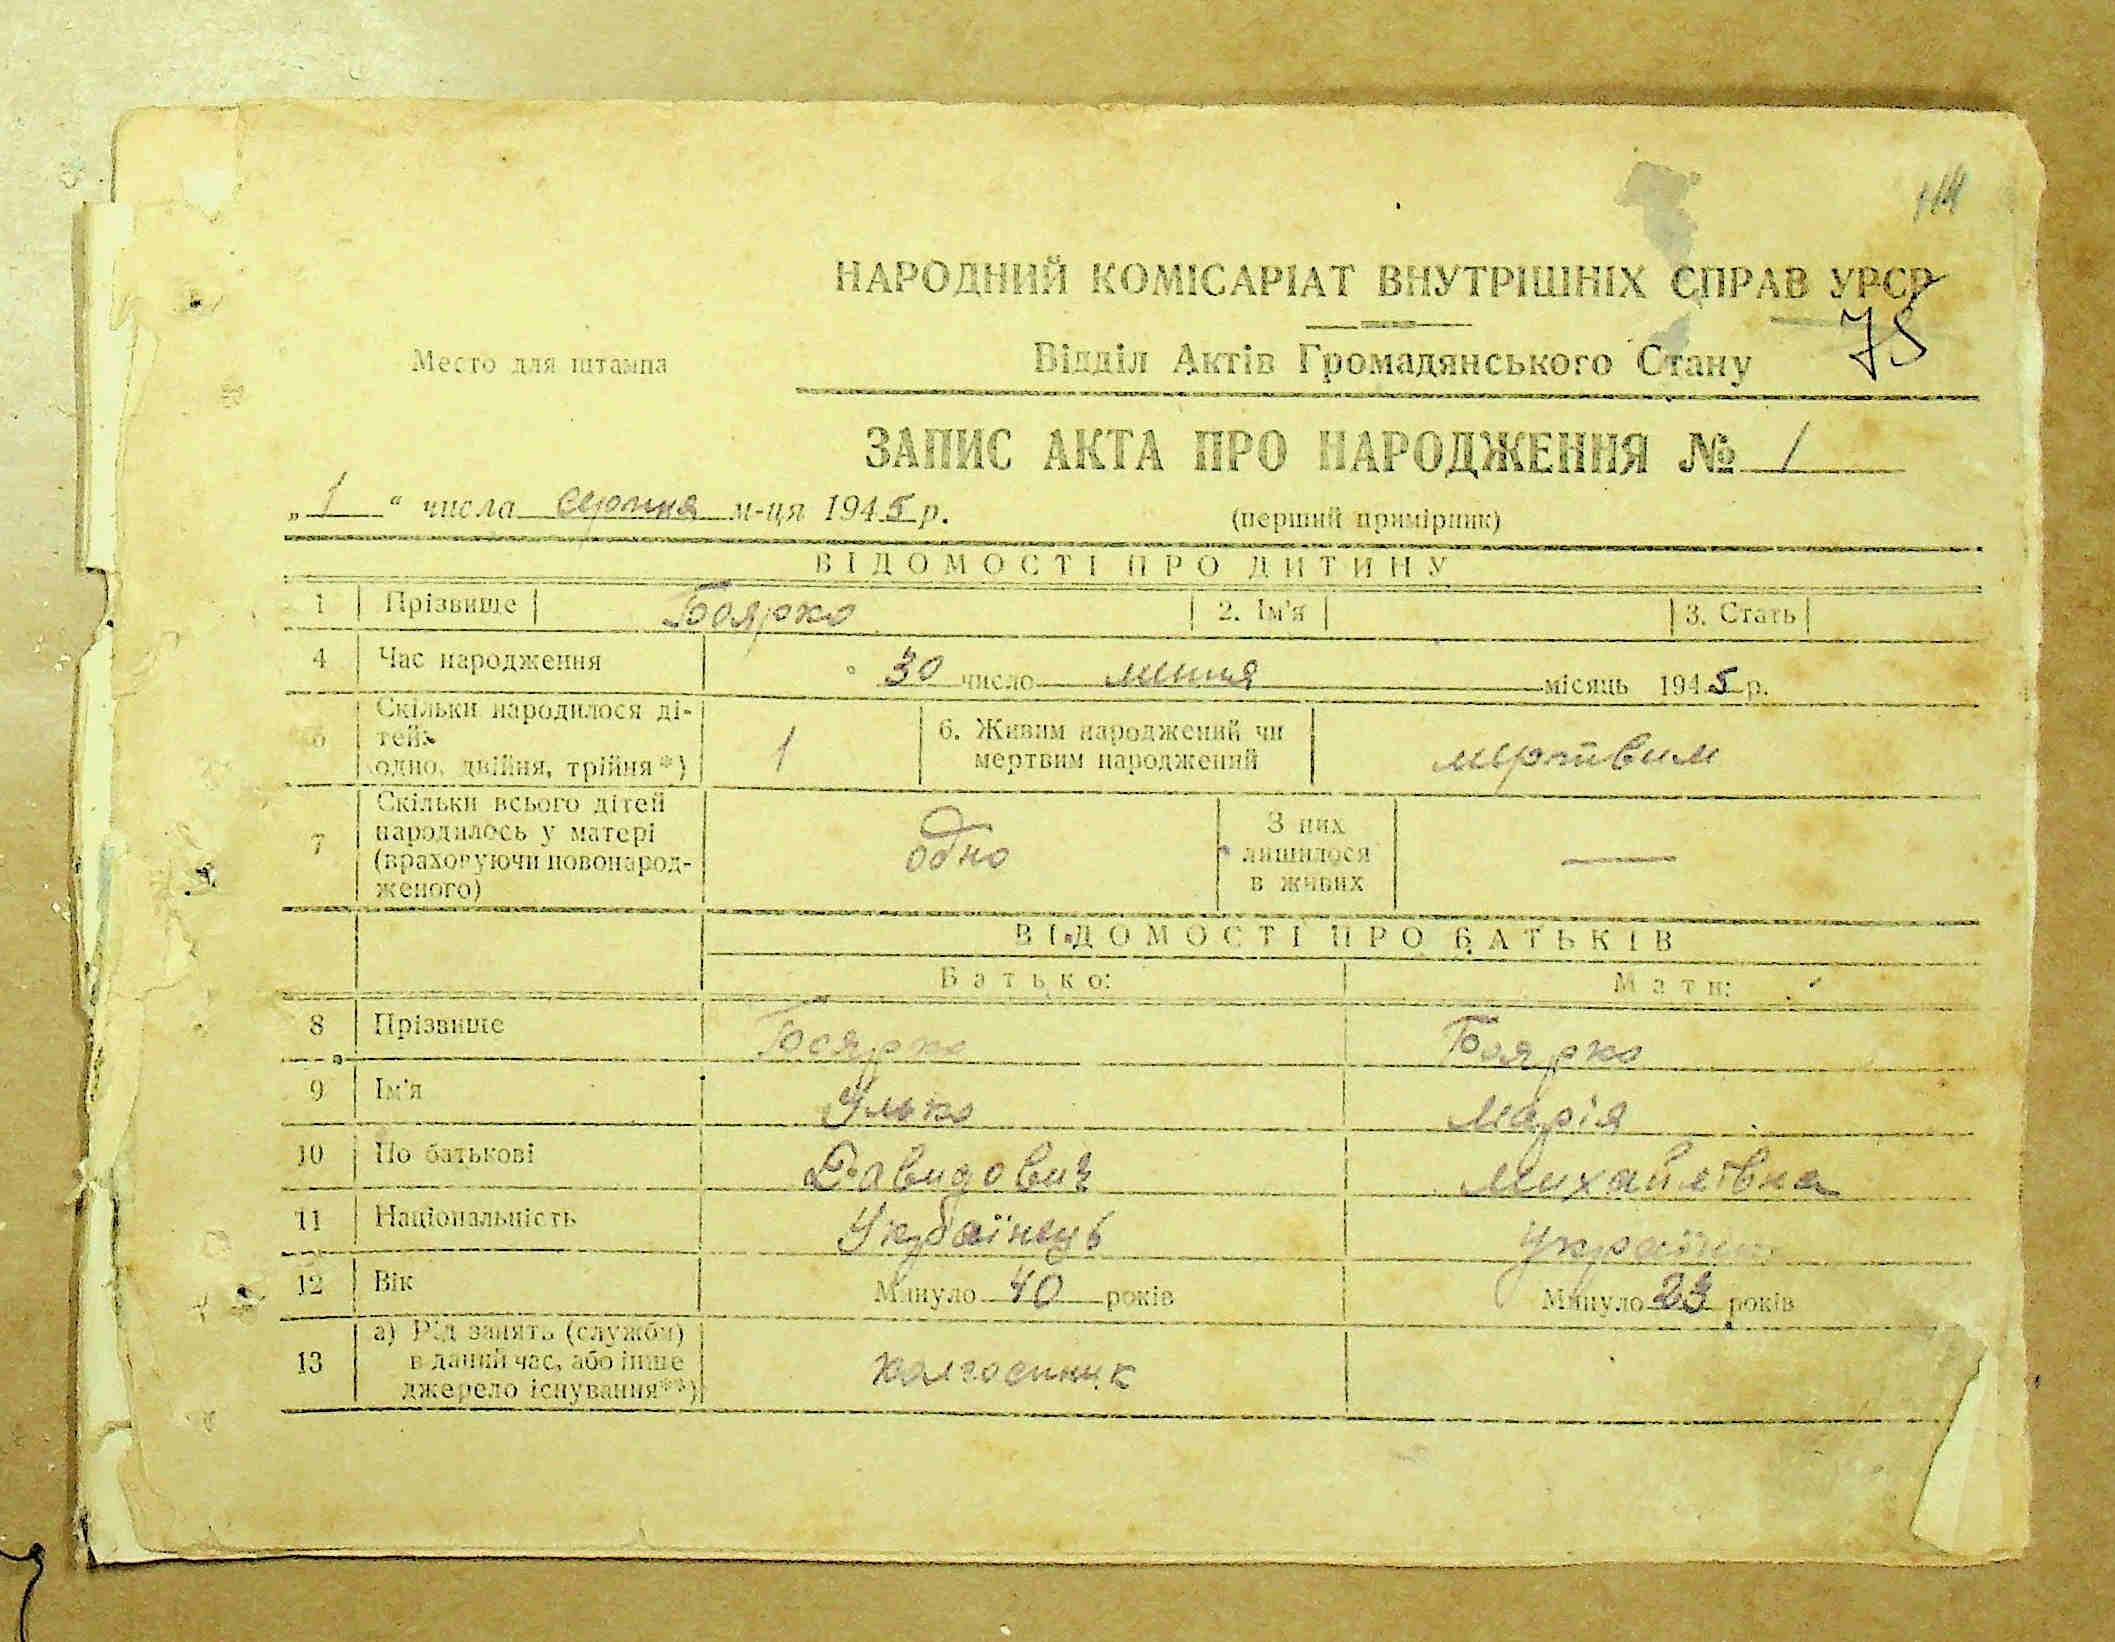 НАРОДНИЙ КОМІСАРІАТ ВНУТРІШНІХ СПРАВ УРСР
75
Место для штампа
Відділ Актів Громадянського Стану
ЗАПИС АКТА ПРО НАРОДЖЕННЯ № 1
„ 1 “ числа серпня м-ця 1945 р.
(перший примірник)
ВІДОМОСТІ ПРО ДИТИНУ
1 Прізвище Боярко 2. Ім'я 3. Стать
4 Час народження 30 число липня місяць 1945 р.
5 Скільки народилося ді-
тей:
одно, двійня, трійня*) 1
6. Живим народжений чи
мертвим народжений мертвим
7 Скільки всього дітей
народилось у матері
(враховуючи новонарод-
женого) одно
З них
лишилося
в живих —
ВІДОМОСТІ ПРО БАТЬКІВ
Батько: Мати:
8 Прізвище Боярко Боярко
9 Ім'я Ілько Марія
10 По батькові Давидович Михайлівна
11 Національність Українець Українка
12 Вік Минуло 40 років Минуло 23 років
13 а) Рід занять (служби)
в даний час, або інше
джерело існування**) колгоспник